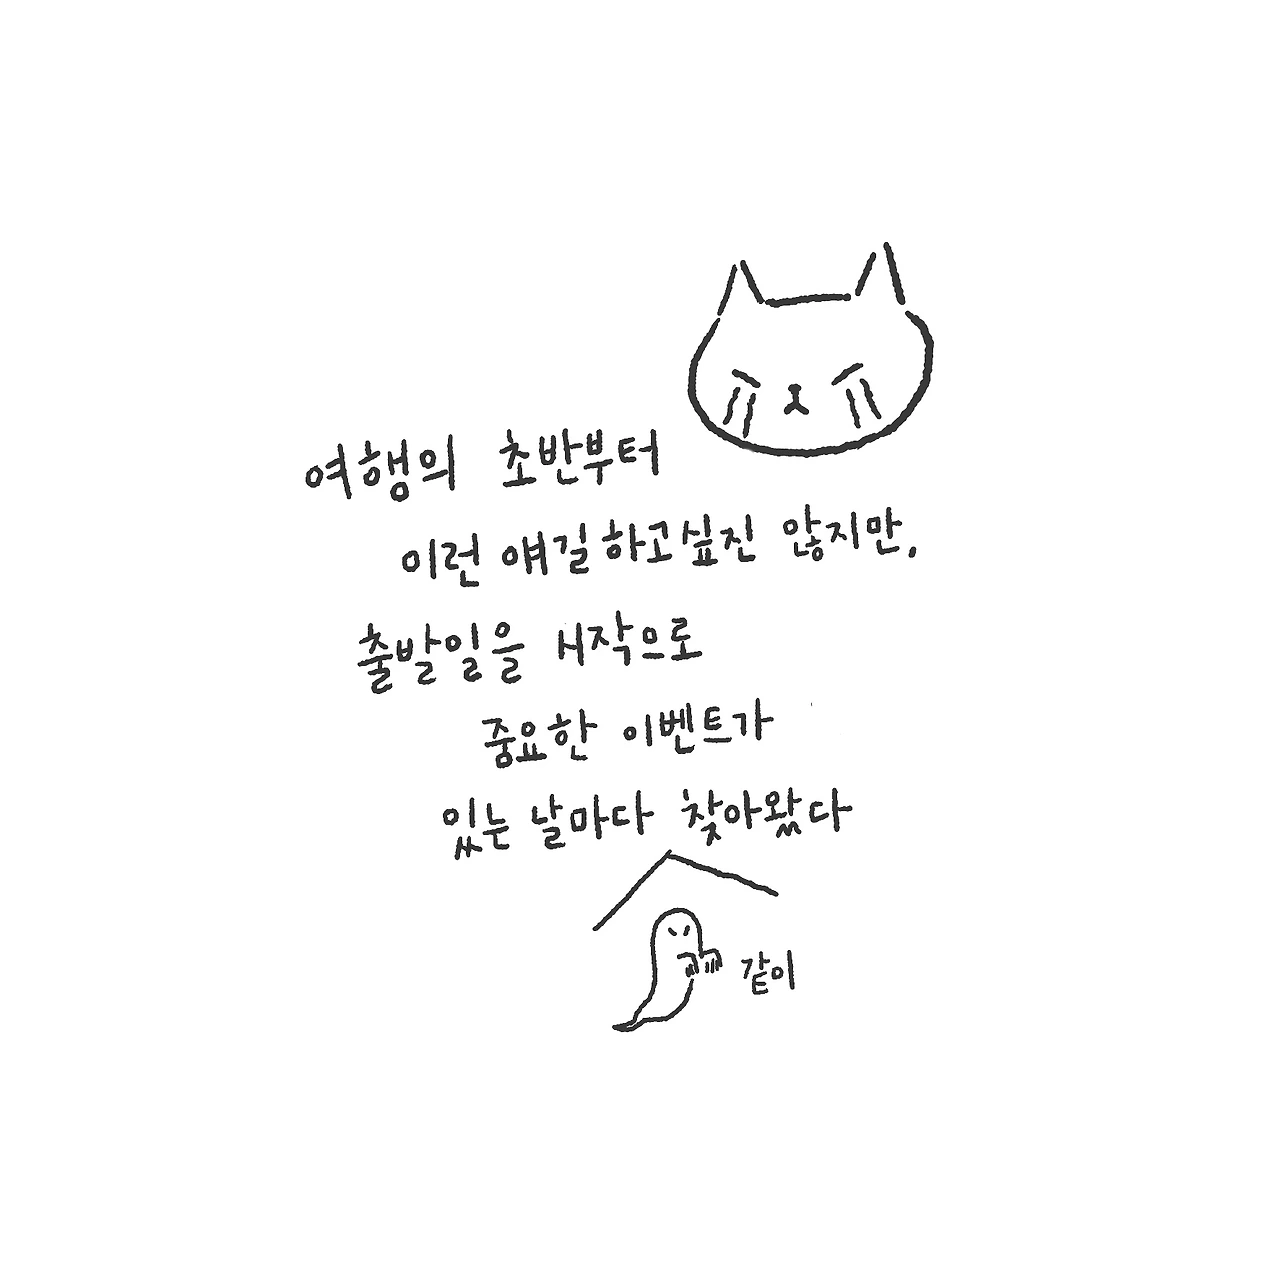 여행의 초반부터
이런 얘길 하고싶진 않지만,
출발일을 시작으로
중요한 이벤트가
있는 날마다 찾아왔다
같이